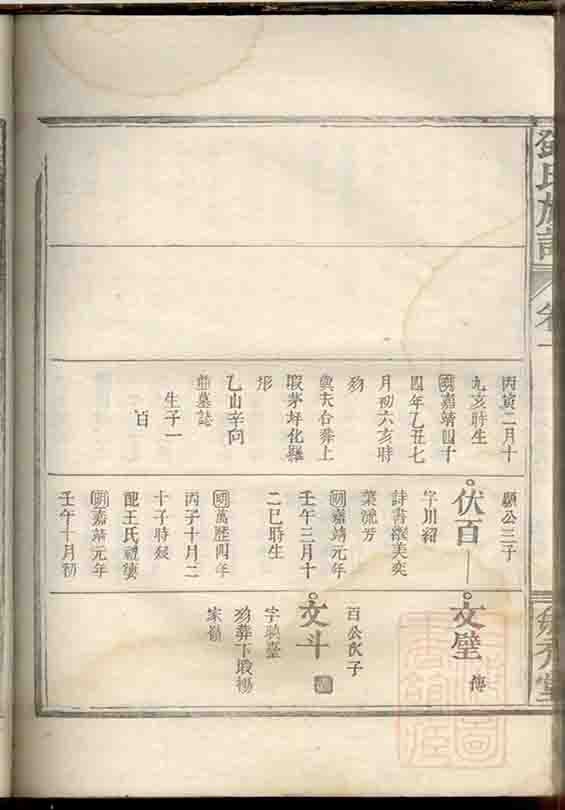 鄧氏族譜
卷一
丙寅二月十
九亥時生
明嘉靖四十
四年乙丑七
月初六亥時
歿
與夫合葬上
塅茅坪化驛
形
乙山辛向
墓誌
生子一
百
顯公三子
伏百
字川紹
詩書濟美奕
葉流芳
明嘉靖元年
壬午三月十
二巳時生
明萬歷四年
丙子十月二
十子時歿
配王氏禮
明嘉靖元年
壬午十月初
文壁 傳
百公次子
文斗
字
歿葬下塅楊
家嶺